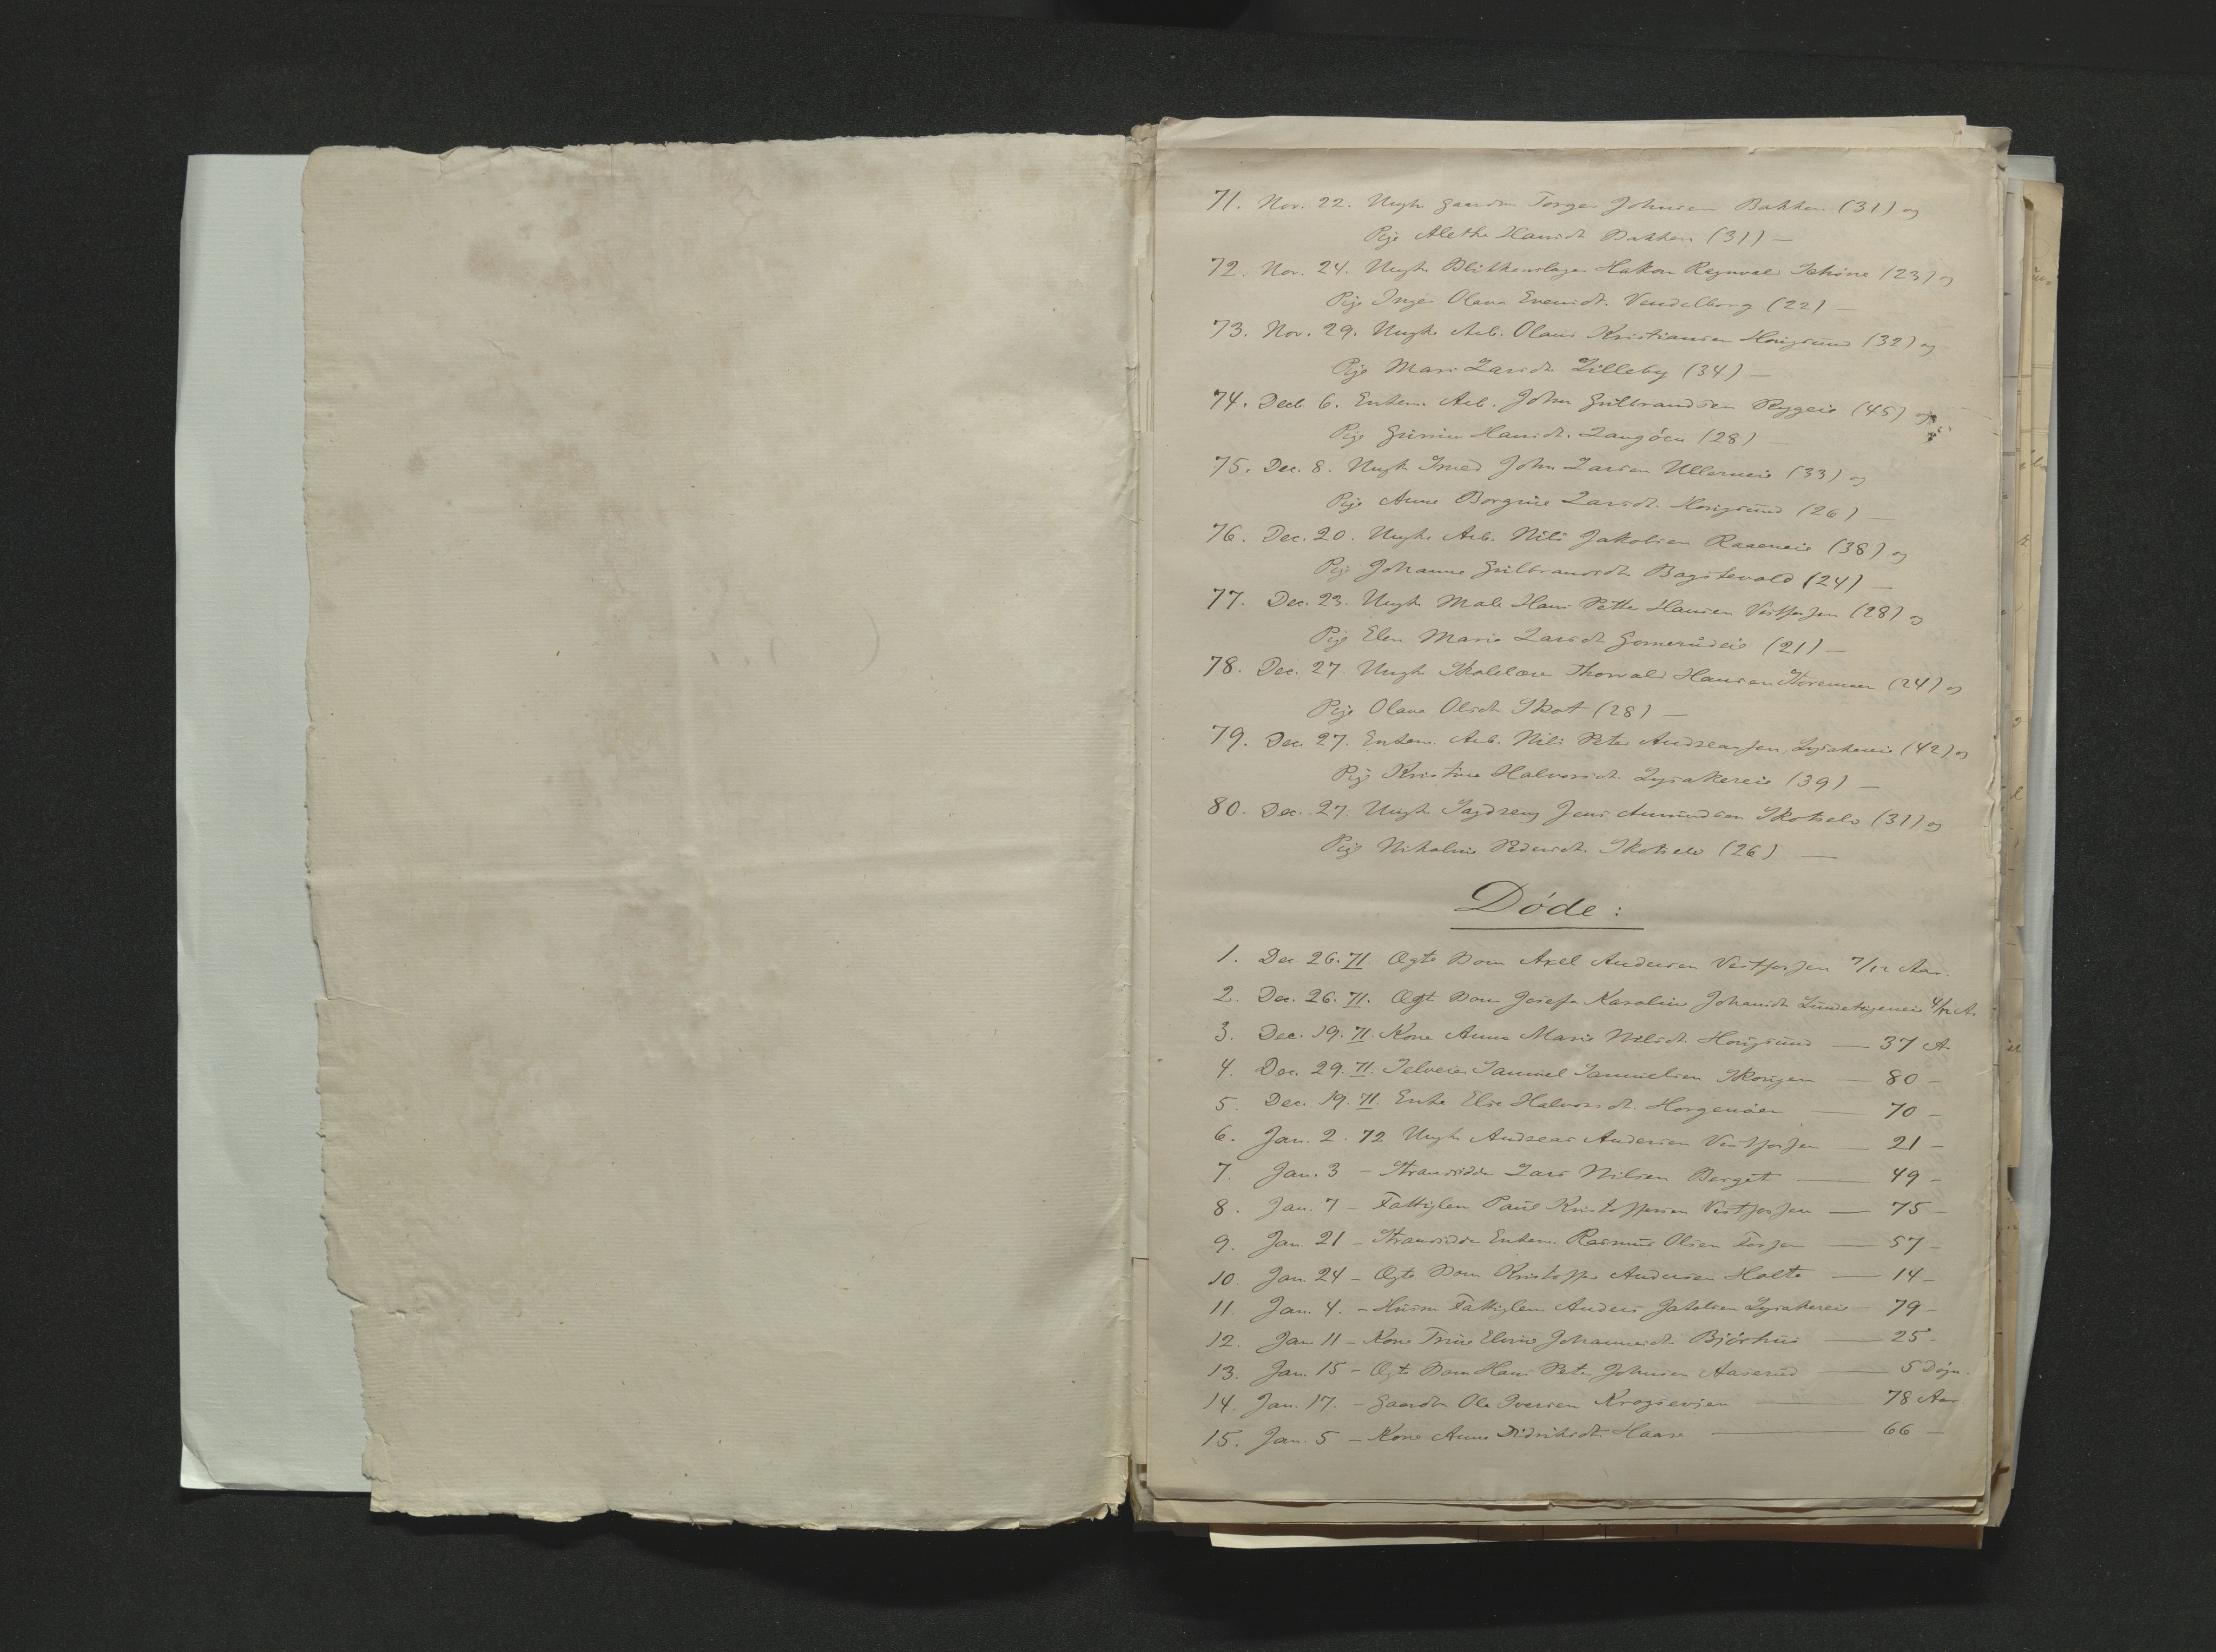 71. Nov. 22. Ungk. Gaardm Torger Johnsen Bakken (31) og
Pige Alethe Hansdt. Bakken (31) —
72. Nov. 24. Ungk. Blikkenslager Hakon Ragnvald Schöne (23) og
Pige Inger Olava Evensdt. Vendelborg (22) —
73. Nov. 29. Ungk. Arb. Olaus Kristiansen Hougsund (32) og
Pige Mari Larsdt. Lilleby (34) —
74. Decb. 6. Enkem. Arb. John Gulbrandsen Ryggeie (45) og
Pige Gunine Hansdt. Langöen (28)
75. Dec. 8. Ungk. Smed John Larsen Ullerneie (33) og
Pige Anne Borgine Larsdt. Hougsund (26) —
76. Dec. 20. Ungk. Arb. Nils Jakobsen Raaeneie (38) og
Pige Johanne Gulbrandsdt. Bagstevold (24) —
77. Dec. 23. Ungk. Maler Hans Petter Hansen Vestfossen (28) og
Pige Elen Marie Larsdt. Gomerudeie (21) —
78. Dec. 27. Ungk. Skolelærer Thorvald Hansen (24) og
Pige Olava Olsdt. Skot (28) —
79. Dec. 27. Enkem. Arb. Nils Peter Andreassen, Lysakereie (42) og
Pige Kristine Halvorsdt. Lysakereie (39) —
80. Dec. 27. Ungk. Sagdreng Jens Amundsen Skotselv (31) og
Pige Nikoline Pedersdt. Skotselv (26) —
Döde:
1. Dec. 26. 71. Ægte Barn Axel Andersen Vestfossen 7/12 Aar.
2. Dec. 26. 71. Ægt. Barn Josefa Karoline Johansdt. 4/12 A.
3. Dec. 19. 71. Kone Anne Marie Nilsdt. Hougsund — 37 A.
4. Dec. 29. 71. Selveier Samuel Samuelsen Skougen — 80 —
5. Dec. 19. 71. Enke Else Halvorsdt. Horgenöen — 70 —
6. Jan. 2. 72 Ungk. Andreas Andersen Vestfossen — 21 —
7. Jan. 3 — Strandsidder Lars Nilsen Berget — 49 —
8. Jan. 7 — Fattiglem Paul Kristoffersen Vestfossen — 75 —
9. Jan. 21 — Strandsidder Enkem. Rasmus Olsen Fossen — 57 —
10. Jan. 24 — Ægte Barn Kristoffer Andersen Holte — 14 —
11. Jan. 4. — Husm. Fattiglem Anders Jakobsen Lysakereie — 79 —
12. Jan 11 — Kone Trine Elevine Johannesdt. Björhus — 25 —
13. Jan. 15 — Ægte Barn Hans Peter Johnsen Aaserud — 5 Dögn.
14. Jan. 17. — Gaardbr. Ole Iversen Krogsevjen — 78 Aar
15. Jan. 5 — Kone Anne Didriksdt. Haare — 66 —